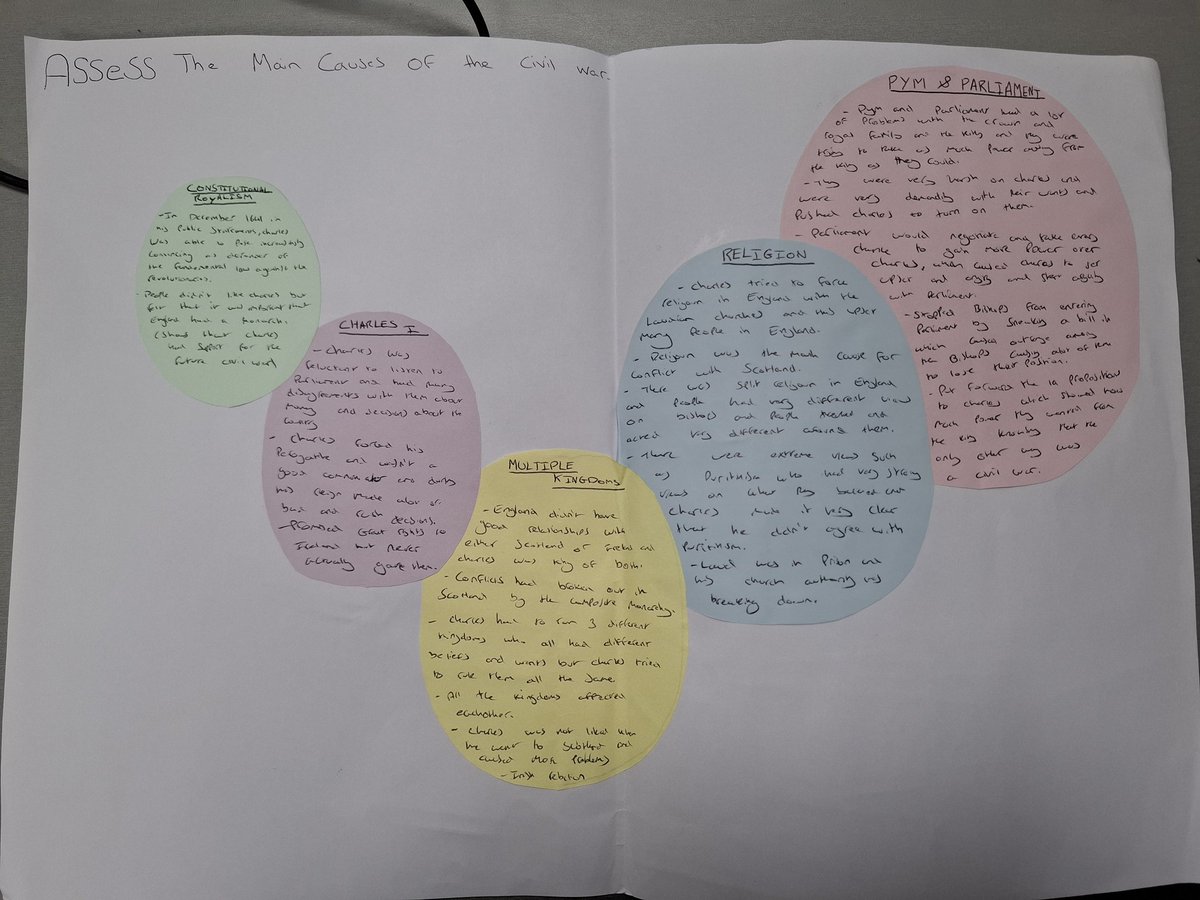 ASSESS The Main Causes of the Civil War.
CONSTITUTIONAL
ROYALISM
- In December 1641 in
his Public Statements, charles
was able to Pose increasingly
convincing as defender of
the fundamental law against the
revolutionaries.
- People didn't like charles but
felt that it was important that
England had a Monarch.
(Shows that charles
had support for the
future civil war)
CHARLES I
- charles was
reluctant to listen to
Parliament and had many
disagreements with them about
money and decisions about the
country
- charles forced his
Prerogative and wasn't a
good communicator and during
his reign made alot of
bad and rash decisions.
- Promised Great rights to
Ireland but never
actually gave them.
MULTIPLE
KINGDOMS
- England didn't have
good relationships with
either Scotland or Ireland and
charles was King of both.
- Conflicts had broken out in
Scotland by the composite monarchy.
- charles had to run 3 different
Kingdoms who all had different
beliefs and wants but charles tried
to rule them all the same.
- All the Kingdoms affected
eachother.
- charles was not liked when
he went to Scotland and
caused more problems
- Irish rebellion
RELIGION
- charles tried to force
religion in England with the
Laudian churches and this upset
many People in England.
- Religion was the main cause for
conflict with Scotland.
- There was split religion in England
and People had very different views
on bishops and People and
acted very different them.
- There were extreme views such
as Puritinism who had very strong
views on what they believed and
charles made it very clear
that he didn't agree with
Puritinism.
- Laud was in Prison and
his church authority was
breaking down.
PYM & PARLIAMENT
- Pym and Parliament had a lot
of Problems with the crown and
royal family and the King and Pym were
trying to take as much Power away from
the King as they could.
- They were very harsh on charles and
were very demanding with their wants and
Pushed charles to turn on them.
- Parliament would negotiate and take every
chance to gain more Power over
charles, which caused charles to get
upset and angry and
with Parliment.
- Stopped Bishops from entering
Parliment by Sneaking a bill in
which caused outrage among
the Bishops causing alot of them
to lose their Position.
- Put forward the 19 Proposition
to charles which showed how
much Power they wanted from
the King knowing that the
only other way was
a civil war.